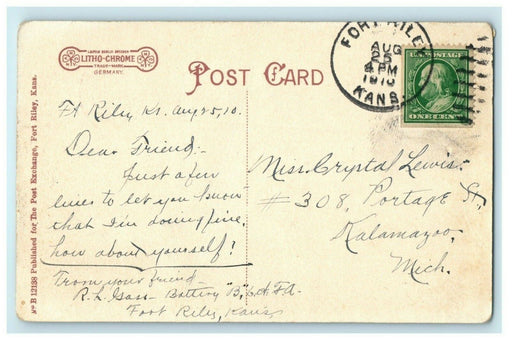 LEIPZIG BERLIN DRESDEN
LITHO-CHROME
TRADE MARK
GERMANY.
POST CARD
FORT RILEY
AUG
25
4 PM
1910
KANS.
U.S. POSTAGE
ONE CENT
No B 12138 Published for The Post Exchange, Fort Riley, Kans.
Ft Riley, Ks. Aug 25, 10.
Dear Friend:-
Just a few
lines to let you know
that I'm doing fine,
how about yourself?
From your friend-
R. L. Gass- Battery "B," 6th F.A.
Fort Riley, Kans
Miss. Crystal Lewis.
#308, Portage St,
Kalamazoo,
Mich.